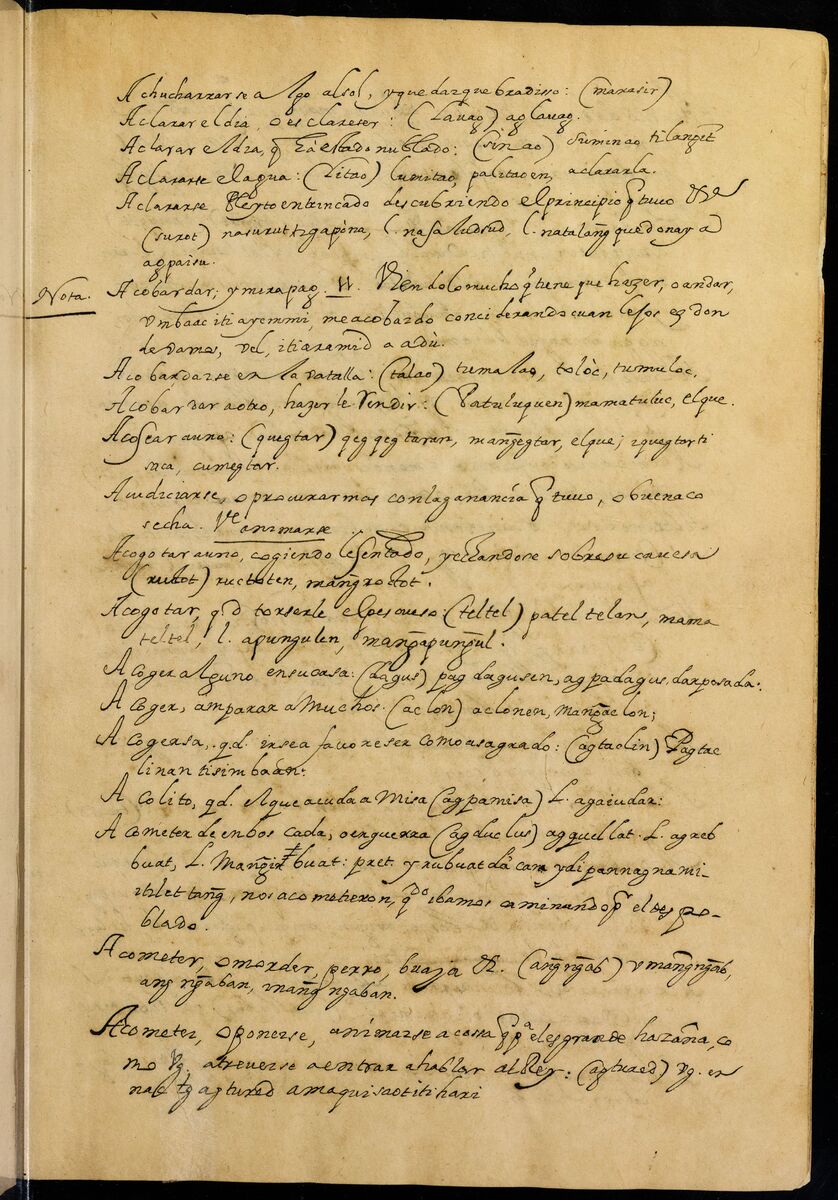 Achucharrarse algo al sol, y quedar quebradisso: (marasir)
Aclarar el dia, o esclareser: (Lauag) aglauag.
Aclarar el dia, q̃ há estado nublado: (sinao) suminao ti langit
Aclararse el agua: (litao) lumitao, palitaoen, aclararla.
Aclararse Pleyto entrincado descubriendo el principio q̃ tuuo &ª
(surot) nasurut ti gapòna, l. nasaludsud, l. natalang̃ que donay a
agpaisu.
Nota. Acobardar; y mira pag. 11. Viendo lo mucho q̃ tiene que hazer, o andar,
vmbaac iti ayemmi, me acobardo conciderando cuan lejos es don
de vamos, vel, iti aramid a adù.
Acobardarse en la vatalla: (talao) tumalao, tolòc, tumuloc,
Acobardar a otro, hazerle Rendir: (Patuluquen) mamatuluc, el que.
Acosear a uno: (quegtar) qegqegtaran, mang̃egtar, el que; iquegtar ti
saca, cumegtar.
Acudiciarse, o procurar mas con la ganancia q̃ tuuo, o buena co
secha. Vᵉ animarse
Acogotar a uno, cogiendole Sentado, y echandose sobre su cauesa
(rutot) ructoten, mang̃roctot.
Acogotar, q.d. torserle el pescueso: (teltel) pateltelan, mama
teltel, l. apungulen, mang̃apung̃ul.
Acoger alguno en su casa: (dagus) pagdagusen, agpadagus, dar posada:
Acoger, amparar á Muchos. (aclon) aclonen, Mang̃aclon;
Acogersa, .q.d. irse a favoreser como a sagrado: (agtaclin) Pagtac
linan ti simbaan:
Acolito, qd. el que aiuda a Misa (agpamisa) L. agaiudar:
Acometer de enboscada, o en guerra (agduclus) agquellat. L. agreb
buat, L. Mang̃irebuat: pret y rubuatda cam ydi pannagnami
iti let tang̃, nos acometieron, qᵈᵒ ibamos caminando pʳ el despo-
blado.
Acometer, o morder, perro, buaja &. (ang̃ng̃ab) vmang̃ng̃ab,
ang ng̃aban, inang̃ngaban.
Acometer, o ponerse, animarse a cossa q̃ pª el es grande hazaña, co
mo Vg. atreverse a entrar a hablar al Rey: (agtured) Vg. en
nac tg agtured a maquisao iti hari